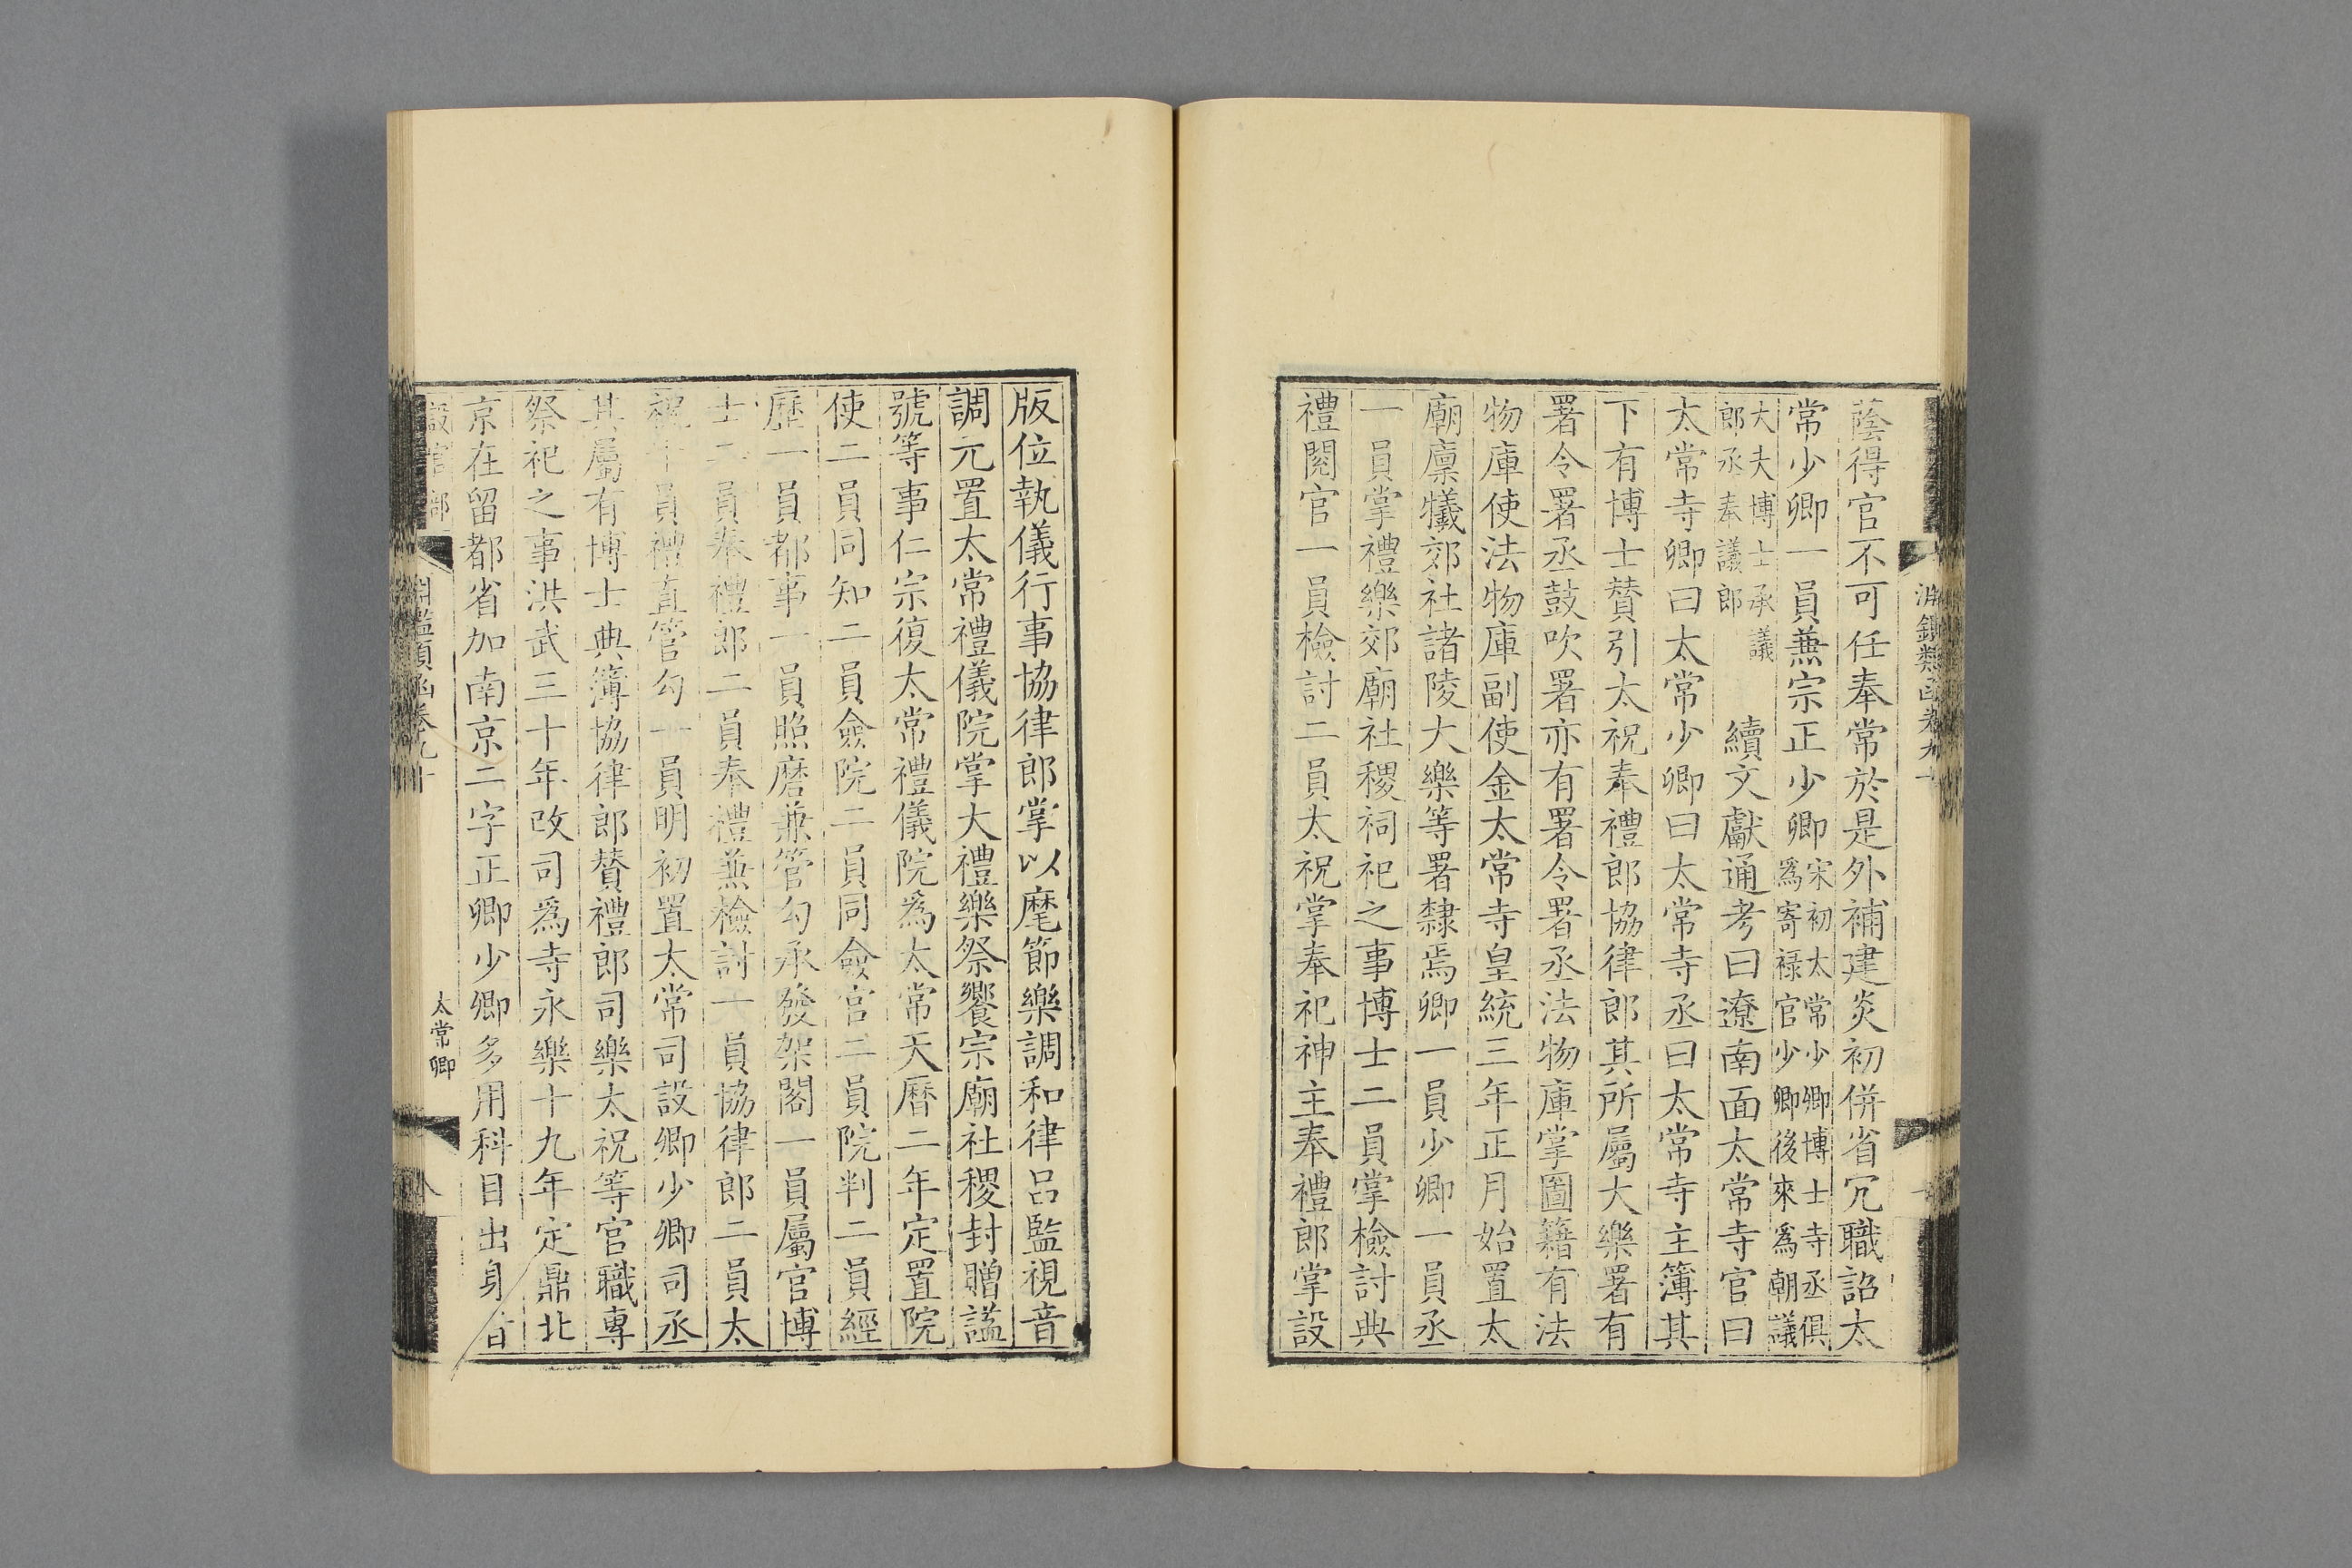 蔭得官不可任奉常於是外補建炎初併省冗職詔太
常少卿一員兼宗正少卿宋初太常少卿博士寺丞俱
爲寄祿官少卿後來爲朝議
大夫博士承議
郎丞奉議郎續文獻通考曰遼南面太常寺官曰
太常寺卿曰太常少卿曰太常寺丞曰太常寺主簿其
下有博士贊引太祝奉禮郎協律郎其所屬大樂署有
署令署丞鼓吹署亦有署令署丞法物庫掌圖籍有法
物庫使法物庫副使金太常寺皇統三年正月始置太
廟廩犧郊社諸陵大樂等署隸焉卿一員少卿一員丞
一員掌禮樂郊廟社稷祠祀之事博士二員掌檢討典
禮閱官一員檢討二員太祝掌奉祀神主奉禮郎掌設
版位執儀行事協律郎掌以麾節樂調和律呂監視音
調元置太常禮儀院掌大禮樂祭饗宗廟社稷封贈謚
號等事仁宗復太常禮儀院爲太常天曆二年定置院
使二員同知二員僉院二員同僉官二員院判二員經
歷一員都事一員照磨兼管勾承發架閣一員屬官博
士二員奉禮郎二員奉禮兼檢討一員協律郎二員太
祝十員禮直管勾一員明初置太常司設卿少卿司丞
其屬有博士典簿協律郎贊禮郎司樂太祝等官職專
祭祀之事洪武三十年改司爲寺永樂十九年定鼎北
京在留都省加南京二字正卿少卿多用科目出身
設官部
淵鑑類函卷九十
太常卿
八